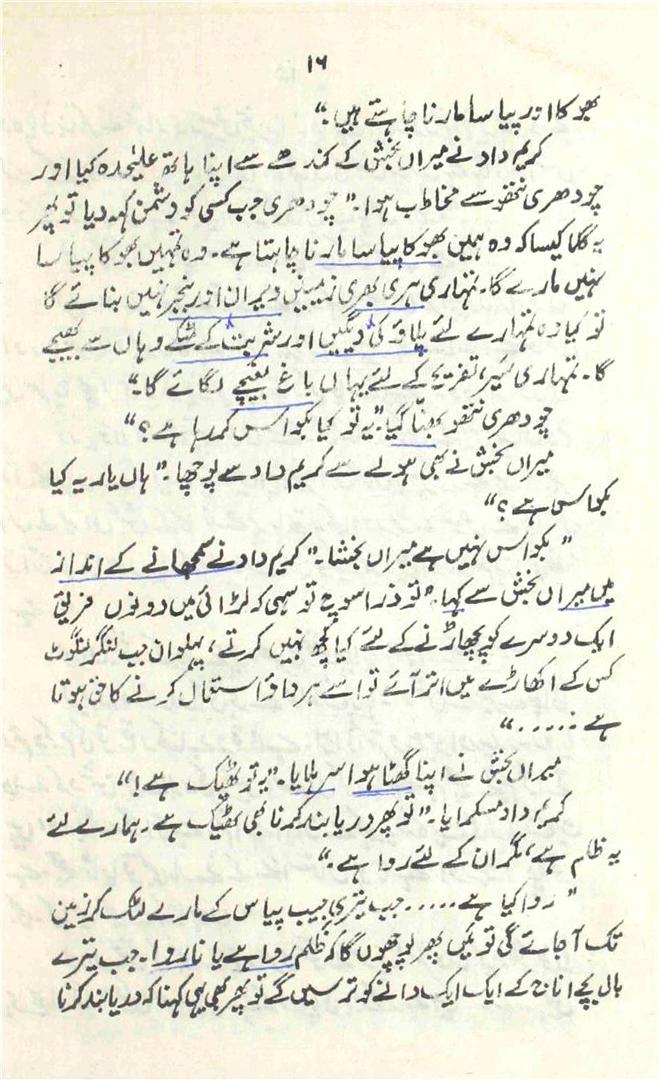 ۱۶
بھوکا اور پیاسا مارنا چاہتے ہیں۔“
کریم داد نے میراں بخش کے کندھے سے اپنا ہاتھ علیٰحدہ کیا اور
چودھری نتھو سے مخاطب ہوا۔ ”چودھری جب کسی کو دشمن کہہ دیا تو پھر
یہ گلا کیسا کہ وہ ہمیں بھوکا پیاسا مارنا چاہتا ہے۔ وہ تمہیں بھوکا پیاسا
نہیں مارے گا۔ تمہاری ہری بھری زمینیں ویران اور بنجر نہیں بنائے گا
تو کیا وہ تمہارے لئے پلاؤ کی دیگیں اور شربت کے مٹکے وہاں سے بھیجے
گا۔ تمہاری سیر، تفریح کے لئے یہاں باغ بغیچے لگائے گا۔“
چودھری نتھو بھنّا گیا۔ ”یہ تو کیا بکواس کر رہا ہے؟“
میراں بخش نے بھی ہولے سے کریم داد سے پوچھا۔ ”ہاں یار یہ کیا
بکواس ہے؟“
”بکواس نہیں ہے میراں بخشا۔“ کریم داد نے سمجھانے کے انداز
میں میراں بخش سے کہا۔ ”تو ذرا سوچ تو سہی کہ لڑائی میں دونوں فریق
ایک دوسرے کو پچھاڑنے کے لئے کیا کچھ نہیں کرتے، پہلوان جب لنگر لنگوٹ
کس کے اکھاڑے میں اتر آئے تو اسے ہر داؤ استعمال کرنے کا حق ہوتا
ہے .....“
میراں بخش نے اپنا گھٹا ہوا سر ہلایا۔ ”یہ تو ٹھیک ہے!“
کریم داد مسکرایا۔ ”تو پھر دریا بند کرنا بھی ٹھیک ہے۔ ہمارے لئے
یہ ظلم ہے، مگر ان کے لئے روا ہے۔“
”روا کیا ہے ..... جب تیری جیب پیاس کے مارے لٹک کر زمین
تک آ جائے گی تو میں پھر پوچھوں گا کہ ظلم روا ہے یا ناروا۔ جب تیرے
بال بچے اناج کے ایک ایک دانے کو ترسیں گے تو پھر بھی یہی کہنا کہ دریا بند کرنا